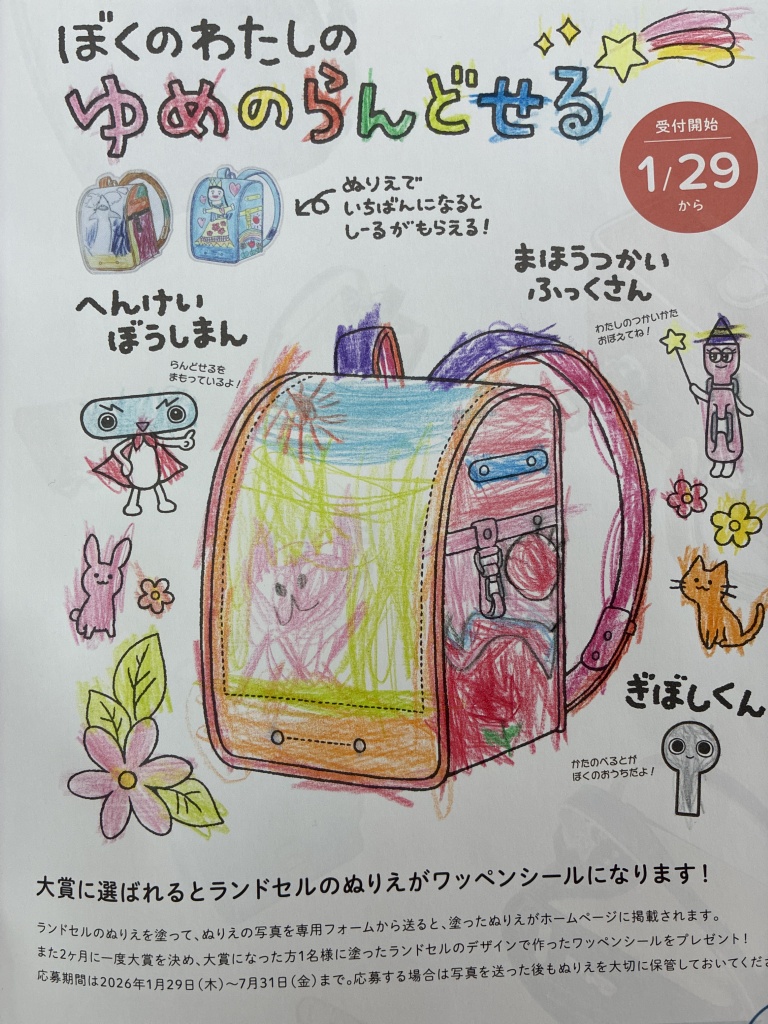 ぼくのわたしの
ゆめのらんどせる
受付開始
1/29
から
ぬりえで
いちばんになると
しーるがもらえる!
まほうつかい
ふっくさん
わたしのつかいかた
おぼえてね!
へんけい
ぼうしまん
らんどせるを
まもっているよ!
ぎぼしくん
かたのべるとが
ぼくのおうちだよ!
大賞に選ばれるとランドセルのぬりえがワッペンシールになります!
ランドセルのぬりえを塗って、ぬりえの写真を専用フォームから送ると、塗ったぬりえがホームページに掲載されます。
また2ヶ月に一度大賞を決め、大賞になった方1名様に塗ったランドセルのデザインで作ったワッペンシールをプレゼント!
応募期間は2026年1月29日(木)〜7月31日(金)まで。応募する場合は写真を送った後もぬりえを大切に保管しておいてくださ